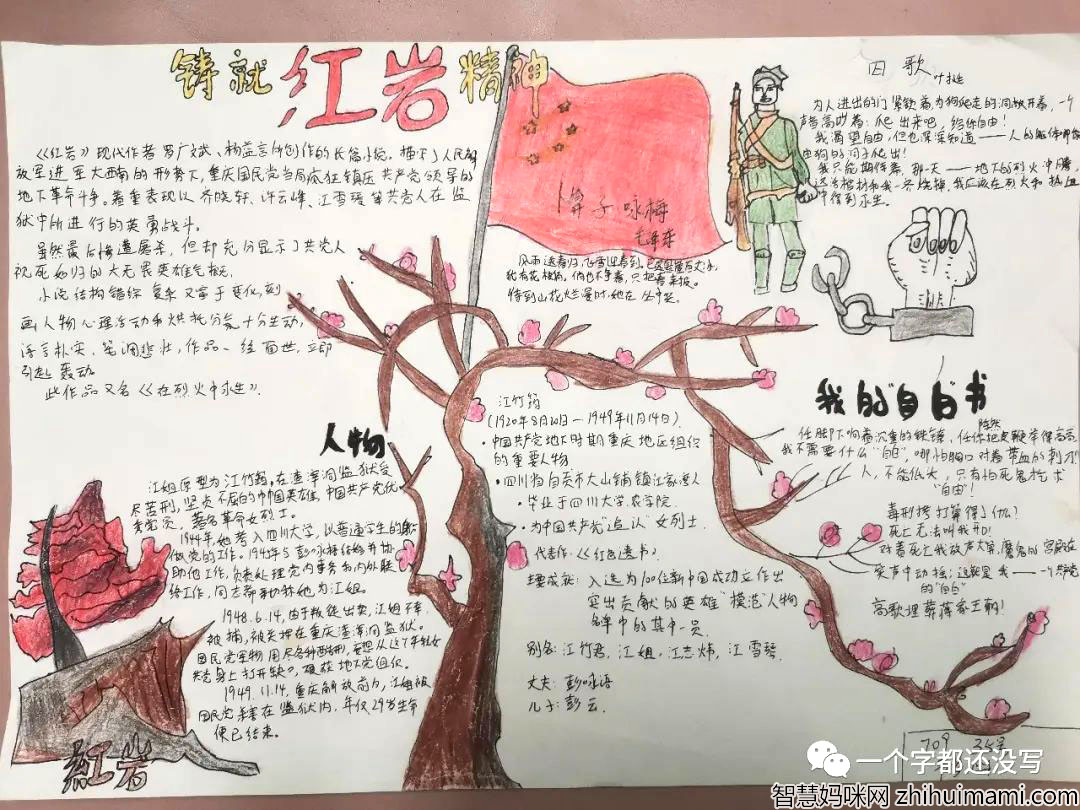 铸就红岩精神
《红岩》现代作者罗广斌、杨益言创作的长篇小说。描写了人民解
放军进军大西南的形势下,重庆国民党当局疯狂镇压共产党领导的
地下革命斗争。着重表现以齐晓轩、许云峰、江雪琴等共党人在监
狱中所进行的英勇战斗。
虽然最后惨遭屠杀,但却充分显示了共党人
视死如归的大无畏英雄气概。
小说结构错综复杂又富于变化,刻
画人物心理活动和烘托气氛十分生动,
语言朴实、笔调悲壮,作品一经面世,立即
引起轰动
此作品又名《在烈火中永生》.
卜算子咏梅
毛泽东
风雨送春归,飞雪迎春到。已是悬崖百丈冰,
犹有花枝俏。俏也不争春,只把春来报。
待到山花烂漫时,她在丛中笑。
囚歌
叶挺
为人进出的门紧锁着为狗爬走的洞敞开着,一个
声音高叫着:爬出来吧,给你自由!
我渴望自由,但也深深知道——人的躯体哪能
由狗的洞子爬出!
我只能期待着,那一天——地下的烈火冲腾,
这活棺材和我一齐烧掉,我应该在烈火和热血
中得到永生。
人物
江姐原型为江竹筠,在渣滓洞监狱受
尽苦刑,坚贞不屈的中国英雄,中国共产党优
秀党员,著名革命女烈士。
1944年,她考入四川大学,以普通学生的身份
做党的工作。1945年与彭咏梧结婚并协
助他工作,负责处理党内事务和内外联
络工作,同志都亲切称她为江姐。
1948.6.14,由于叛徒出卖,江姐不幸
被捕,被关押在重庆渣滓洞监狱。
国民党军物用尽各种酷刑,妄想从这个年轻女
共党身上打开缺口,破获地下党组织。
1949.11.14,重庆解放前夕,江姐被
国民党杀害在监狱内,年仅29岁生命
便已结束。
江竹筠
(1920年8月20日—1949年11月14日)
·中国共产党地下时期重庆地区组织
的重要人物
·四川省自贡市大山铺镇江家湾人
·毕业于四川大学农学院.
·为中国共产党"追认"女烈士.
代表作:《红色遗书》.
主要成就:入选为100位新中国成功立作出
突出贡献的英雄"模范"人物
名单中的其中一员.
别名:江竹君,江姐,江志炜,江雪琴.
丈夫:彭咏梧
儿子:彭云.
我的"自白"书
陈然
任脚下响着沉重的铁镣,任你把皮鞭举得高高,
我不需要什么"自白",哪怕胸口对着带血的刺刀!
人,不能低头,只有怕死鬼乞求
"自由!
毒刑拷打算得了什么?
死亡无法叫我开口!
对着死亡我放声大笑,魔鬼的宫殿在
笑声中动摇;这就是我——一个共党
的"自白"
高歌埋葬蒋家王朝!
紅岩
709
一个字都还没写
智慧妈咪网 zhihuimami.com